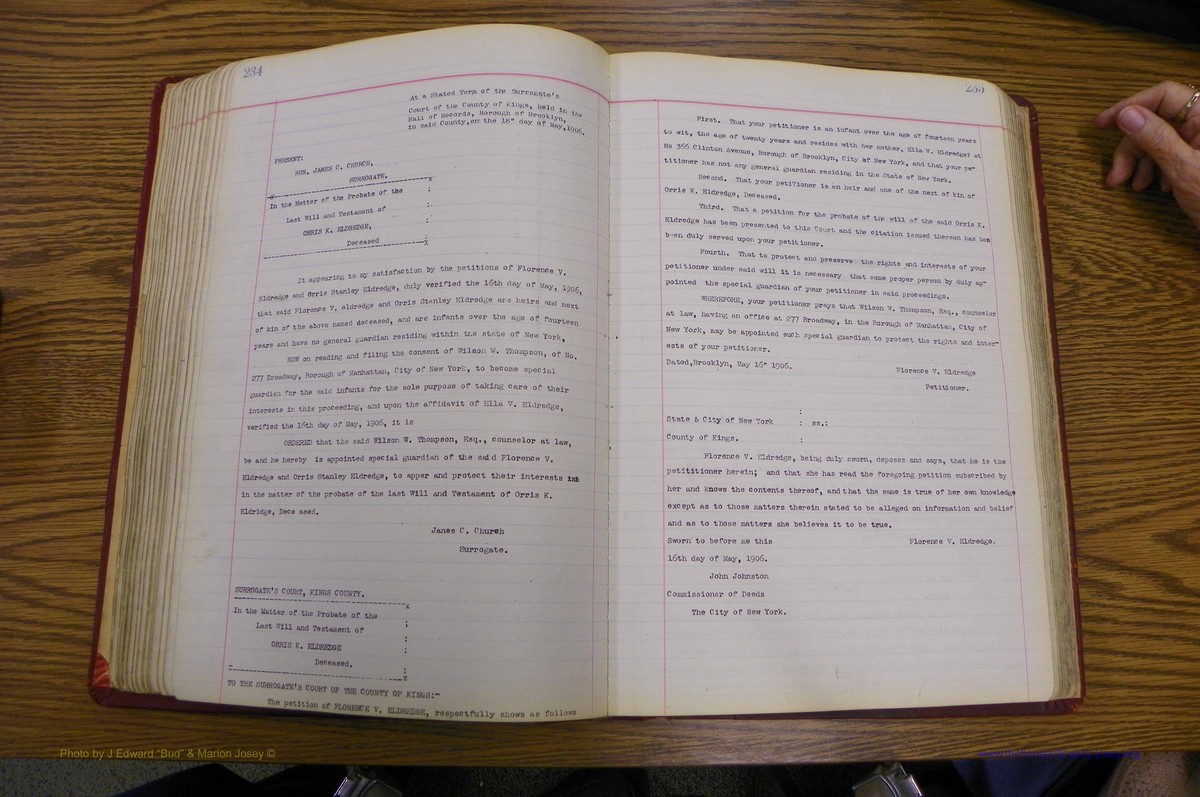 234
At a Stated Term of the Surrogate's
Court of the County of Kings, held in the
Hall of Records, Borough of Brooklyn,
in said County,on the 18" day of May,1906.
PRESENT:
HON. JAMES C. CHURCH,
SURROGATE.
----------x
In the Matter of the Probate of the :
Last Will and Testament of :
ORRIS K. ELDREDGE, :
Deceased :
----------x
It appearing to my satisfaction by the petitions of Florence V.
Eldredge and Orris Stanley Eldredge, duly verified the 16th day of May, 1906,
that said Florence V. eldredge and Orris Stanley Eldredge are heirs and next
of kin of the above named deceased, and are infants over the age of fourteen
years and have no general guardian residing within the state of New York,
NOW on reading and filing the consent of Wilson W. Thompson, of No.
277 Broadway, Borough of Manhattan, City of New York, to become special
guardian for the said infants for the sole purpose of taking care of their
interests in this proceeding, and upon the affidavit of Ella V. Eldredge,
verified the 16th day of May, 1906, it is
ORDERED that the said Wilson W. Thompson, Esq., counselor at law,
be and he hereby is appointed special guardian of the said Florence V.
Eldredge and Orris Stanley Eldredge, to apper and protect their interests
in the matter of the probate of the last Will and Testament of Orris K.
Eldridge, Dece ased.
James C. Church
Surrogate.
SURROGATE'S COURT, KINGS COUNTY.
----------x
In the Matter of the Probate of the :
Last Will and Testament of :
ORRIS K. ELDREDGE :
Deceased. :
----------x
TO THE SURROGATE'S COURT OF THE COUNTY OF KINGS:-
The petition of FLORENCE V. ELDREDGE, respectfully shows as follows
235
First. That your petitioner is an infant over the age of fourteen years
to wit, the age of twenty years and resides with her mother, Ella V. Eldredge, at
No 366 Clinton Avenue, Borough of Brooklyn, City of New York, and that your pe-
titioner has not any general guardian residing in the State of New York.
Second. That your petitioner is an heir and one of the next of kin of
Orris K. Eldredge, Deceased.
Third. That a petition for the probate of the will of the said Orris K.
Eldredge has been presented to this Court and the citation issued thereon has been
been duly served upon your petitioner.
Fourth. That to protect and preserve the rights and interests of your
petitioner under said will it is necessary that some proper person by duly ap-
pointed the special guardian of your petitioner in said proceedings.
WHEREFORE, your petitioner prays that Wilson W. Thompson, Esq., counselor
at law, having an office at 277 Broadway, in the Borough of Manhattan, City of
New York, may be appointed such special guardian to protect the rights and inter-
ests of your petitioner.
Dated,Brooklyn, May 16" 1906.
Florence V. Eldredge
Petitioner.
:
State & City of New York : ss.:
County of Kings. :
Florence V. Eldredge, being duly sworn, deposes and says, that he is the
petititioner herein; and that she has read the foregoing petition subscribed by
her and knows the contents thereof, and that the same is true of her own knowledge
except as to those matters therein stated to be alleged on information and belief
and as to those matters she believes it to be true.
Sworn to before me this Florence V. Eldredge.
16th day of May, 1906.
John Johnston
Commissioner of Deeds
The City of New York.
Photo by J Edward "Bud" & Marion Josey ©